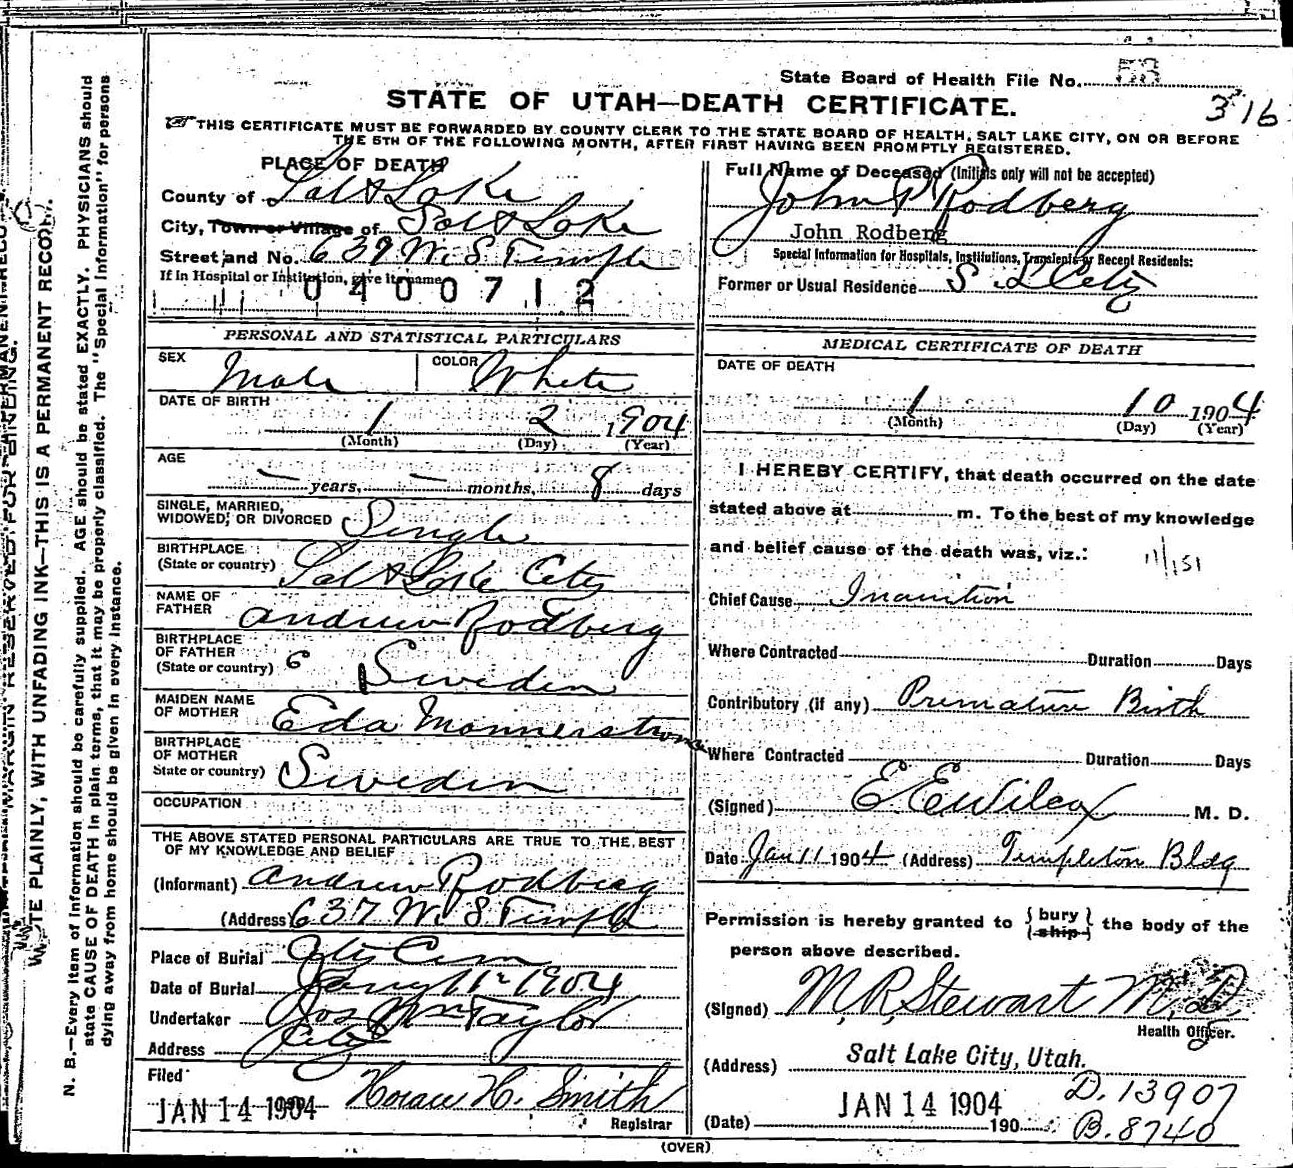 State Board of Health File No. 53
STATE OF UTAH—DEATH CERTIFICATE.
316
THIS CERTIFICATE MUST BE FORWARDED BY COUNTY CLERK TO THE STATE BOARD OF HEALTH, SALT LAKE CITY, ON OR BEFORE
THE 5TH OF THE FOLLOWING MONTH, AFTER FIRST HAVING BEEN PROMPTLY REGISTERED.
PLACE OF DEATH
County of Salt Lake
City, Town or Village of Salt Lake
Street and No. 639 W. S Temple
If in Hospital or Institution, give its name
0400712
Full Name of Deceased (Initials only will not be accepted)
John P Rodberg
John Rodberg
Special Information for Hospitals, Institutions, Transients or Recent Residents:
Former or Usual Residence S L City
PERSONAL AND STATISTICAL PARTICULARS
SEX Male
COLOR White
DATE OF BIRTH
1 2 1904
(Month) (Day) (Year)
AGE
— years, — months, 8 days
SINGLE, MARRIED,
WIDOWED, OR DIVORCED Single
BIRTHPLACE
(State or country) Salt Lake City
NAME OF
FATHER Andrew Rodberg
BIRTHPLACE
OF FATHER
(State or country) 6 Sweden
MAIDEN NAME
OF MOTHER Eda Monnerstrom
BIRTHPLACE
OF MOTHER
State or country) Sweden
OCCUPATION
THE ABOVE STATED PERSONAL PARTICULARS ARE TRUE TO THE BEST
OF MY KNOWLEDGE AND BELIEF
(Informant) Andrew Rodberg
(Address) 637 W. S Temple
Place of Burial City Cem
Date of Burial 11 1904
Undertaker Jos Wm Taylor
Address City
Filed
JAN 14 1904 Horace H. Smith
Registrar
MEDICAL CERTIFICATE OF DEATH
DATE OF DEATH
1 10 1904
(Month) (Day) (Year)
I HEREBY CERTIFY, that death occurred on the date
stated above at m. To the best of my knowledge
and belief cause of the death was, viz.:
11/151
Chief Cause Inanition
Where Contracted Duration Days
Contributory (if any) Premature Birth
Where Contracted Duration Days
(Signed) E E Wilcox M. D.
Date Jan 11 1904 (Address) Templeton Bldg
Permission is hereby granted to { bury / ship } the body of the
person above described.
(Signed) M. R. Stewart M. D
Health Officer.
(Address) Salt Lake City, Utah.
D. 13907
(Date) JAN 14 1904 190
B. 8740
(OVER)
MARGIN RESERVED FOR BINDING.
WRITE PLAINLY, WITH UNFADING INK—THIS IS A PERMANENT RECORD.
N. B.—Every item of information should be carefully supplied. AGE should be stated EXACTLY. PHYSICIANS should
state CAUSE OF DEATH in plain terms, that it may be properly classified. The "Special Information" for persons
dying away from home should be given in every instance.